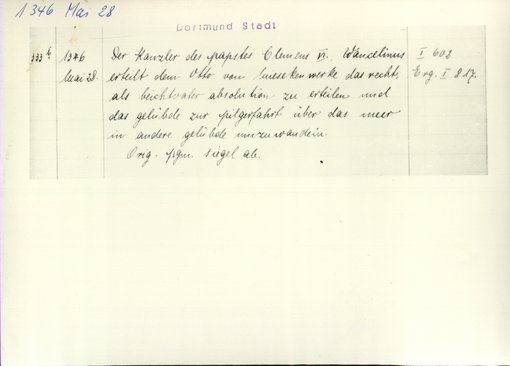 1346 Mai 28
Dortmund Stadt
133b 1346 Der Kanzler des papstes Clemens VI., Wancelinus I 603
Mai 28. erteilt dem Otto von mesekenwerke das recht, Erg. I 817.
als beichtvater absolution zu erteilen und
das gelübde zur pilgerfahrt über das meer
in andere gelübde umzuwandeln.
Orig. pgm. siegel ab.